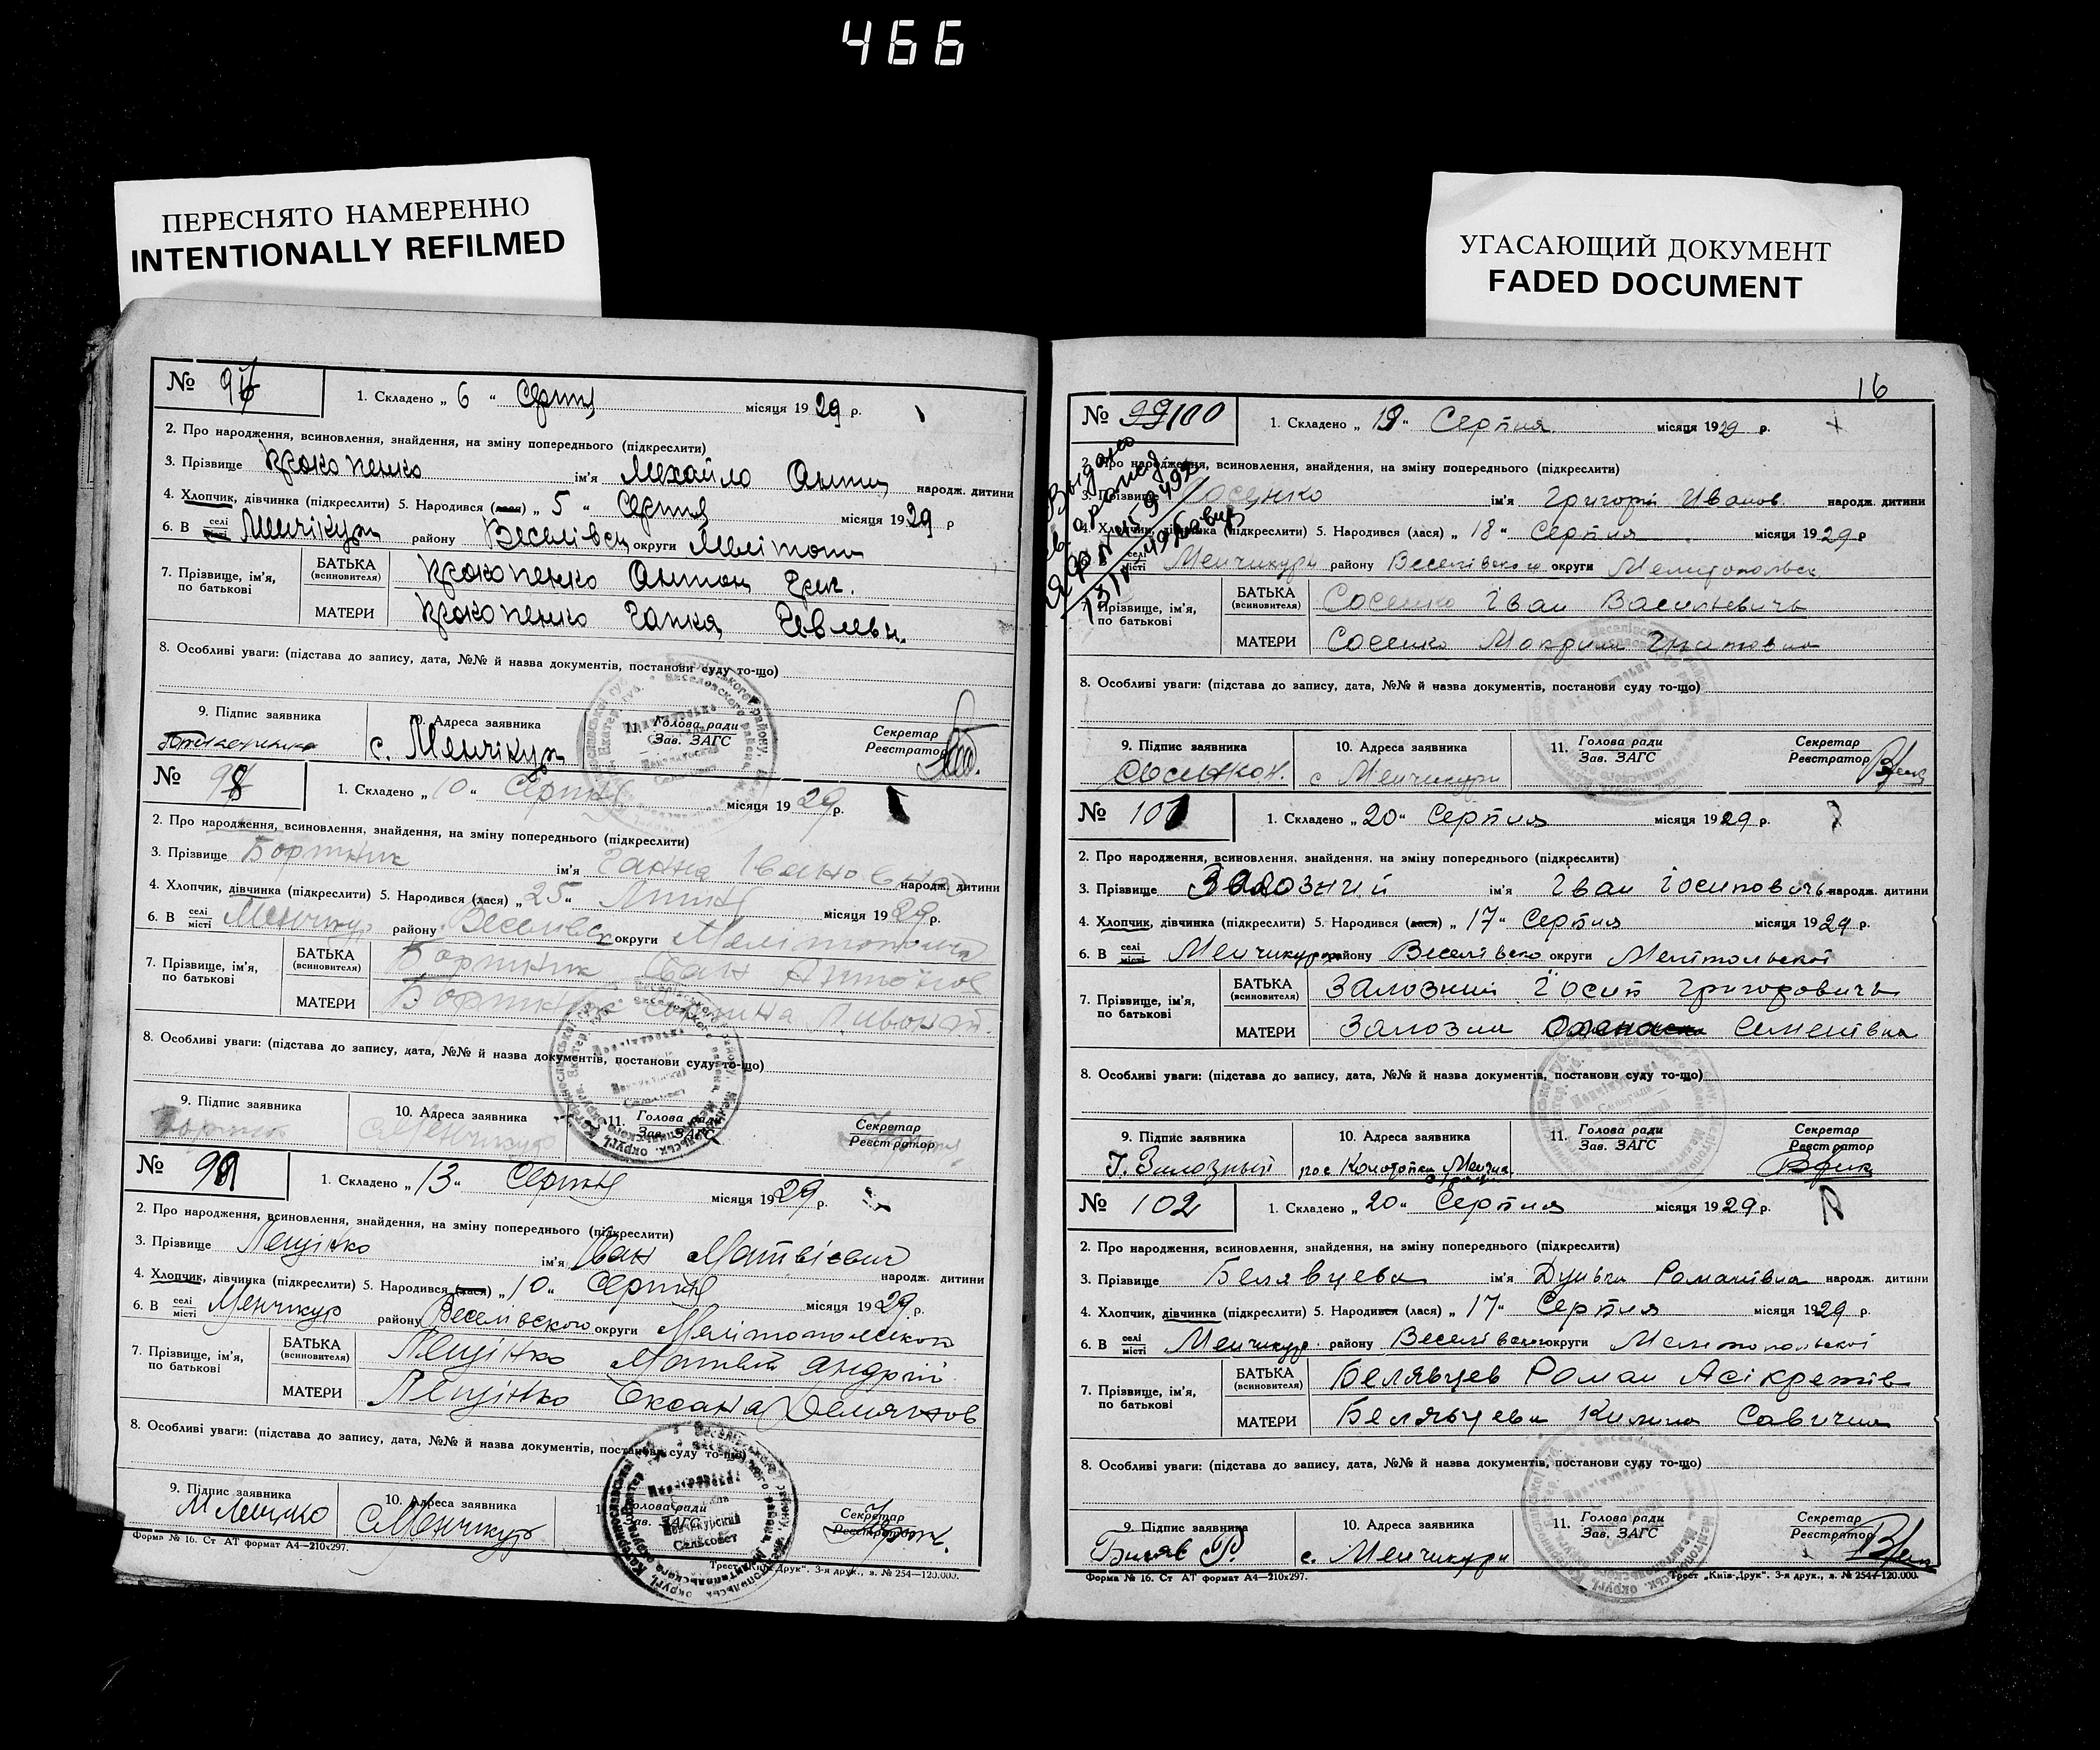 466
ПЕРЕСНЯТО НАМЕРЕННО
INTENTIONALLY REFILMED
УГАСАЮЩИЙ ДОКУМЕНТ
FADED DOCUMENT
№ 97
1. Складено „ 6 “ Серпня місяця 1929 р.
2. Про народження, всиновлення, знайдення, на зміну попереднього (підкреслити)
3. Прізвище Прокопенко ім'я Михайло Антон народж. дитини
4. Хлопчик, дівчинка (підкреслити) 5. Народився (лася) „ 5 “ Серпня місяця 1929 р
6. В селі місті Менчікури району Веселівськ округи Мелітоп
7. Прізвище, ім'я, по батькові
БАТЬКА (всиновителя) Прокопенко Антон Григ.
МАТЕРИ Прокопенко Гапка
8. Особливі уваги: (підстава до запису, дата, №№ й назва документів, постанови суду то-що)
9. Підпис заявника
10. Адреса заявника с. Менчікури
11. Голова ради Зав. ЗАГС
Секретар Реєстратор
№ 98
1. Складено „ 10 “ Серпня місяця 1929 р.
2. Про народження, всиновлення, знайдення, на зміну попереднього (підкреслити)
3. Прізвище Бортник ім'я Ганна Івановна народж. дитини
4. Хлопчик, дівчинка (підкреслити) 5. Народився (лася) „ 25 “ Липня місяця 1929 р.
6. В селі місті Менчикур району Веселівськ округи Мелітопольск
7. Прізвище, ім'я, по батькові
БАТЬКА (всиновителя) Бортник Іван Антонов
МАТЕРИ Бортник
8. Особливі уваги: (підстава до запису, дата, №№ й назва документів, постанови суду то-що)
9. Підпис заявника Бортник
10. Адреса заявника с Менчикур
11. Голова ради Зав. ЗАГС
Секретар Реєстратор
№ 99
1. Складено „ 13 “ Серпня місяця 1929 р.
2. Про народження, всиновлення, знайдення, на зміну попереднього (підкреслити)
3. Прізвище Лещінко ім'я Іван Матвієвич народж. дитини
4. Хлопчик, дівчинка (підкреслити) 5. Народився (лася) „ 10 “ Серпня місяця 1929 р.
6. В селі місті Менчикур району Веселівского округи Мелітопольскої
7. Прізвище, ім'я, по батькові
БАТЬКА (всиновителя) Лещінко Матвій Андрій
МАТЕРИ Лещінко Оксана Демянов
8. Особливі уваги: (підстава до запису, дата, №№ й назва документів, постанови суду то-що)
9. Підпис заявника М Лещенко
10. Адреса заявника с Менчикур
11. Голова ради Зав. ЗАГС
Секретар Реєстратор
Форма № 16. Ст АТ формат А4—210x297.
Трест „Київ-Друк“. 3-я друк., з. № 254—120.000.
16
№ 99/100
1. Складено „ 19 “ Серпня місяця 1929 р.
2. Про народження, всиновлення, знайдення, на зміну попереднього (підкреслити)
3. Прізвище Сосенко ім'я Григорій Іванов. народж. дитини
4. Хлопчик, дівчинка (підкреслити) 5. Народився (лася) „ 18 “ Серпня місяця 1929 р
6. В селі місті Менчикури району Веселівского округи Мелитопольск
7. Прізвище, ім'я, по батькові
БАТЬКА (всиновителя) Сосенко Іван Васильевичь
МАТЕРИ Сосенко Мокрина Гнатовна
8. Особливі уваги: (підстава до запису, дата, №№ й назва документів, постанови суду то-що)
9. Підпис заявника Сосенко И.
10. Адреса заявника с Менчикури
11. Голова ради Зав. ЗАГС
Секретар Реєстратор
№ 101
1. Складено „ 20 “ Серпня місяця 1929 р.
2. Про народження, всиновлення, знайдення, на зміну попереднього (підкреслити)
3. Прізвище Залозний ім'я Іван Іосиповичь народж. дитини
4. Хлопчик, дівчинка (підкреслити) 5. Народився (лася) „ 17 “ Серпня місяця 1929 р.
6. В селі місті Менчикури району Веселівско округи Мелітольскої
7. Прізвище, ім'я, по батькові
БАТЬКА (всиновителя) Залозний Іосип Григоровичь
МАТЕРИ Залозна Семенівна
8. Особливі уваги: (підстава до запису, дата, №№ й назва документів, постанови суду то-що)
9. Підпис заявника І. Залозный
10. Адреса заявника
11. Голова ради Зав. ЗАГС
Секретар Реєстратор
№ 102
1. Складено „ 20 “ Серпня місяця 1929 р.
2. Про народження, всиновлення, знайдення, на зміну попереднього (підкреслити)
3. Прізвище Белявцева ім'я Дунька Романівна народж. дитини
4. Хлопчик, дівчинка (підкреслити) 5. Народився (лася) „ 17 “ Серпня місяця 1929 р.
6. В селі місті Менчикур району Веселівского округи Мелитопольскої
7. Прізвище, ім'я, по батькові
БАТЬКА (всиновителя) Белявцев Роман Асікретів
МАТЕРИ Белявцева Килина Савична
8. Особливі уваги: (підстава до запису, дата, №№ й назва документів, постанови суду то-що)
9. Підпис заявника Биляв Р.
10. Адреса заявника с. Менчикури
11. Голова ради Зав. ЗАГС
Секретар Реєстратор
Форма № 16. Ст АТ формат А4—210x297.
Трест „Київ-Друк“. 3-я друк., з. № 254—120.000.